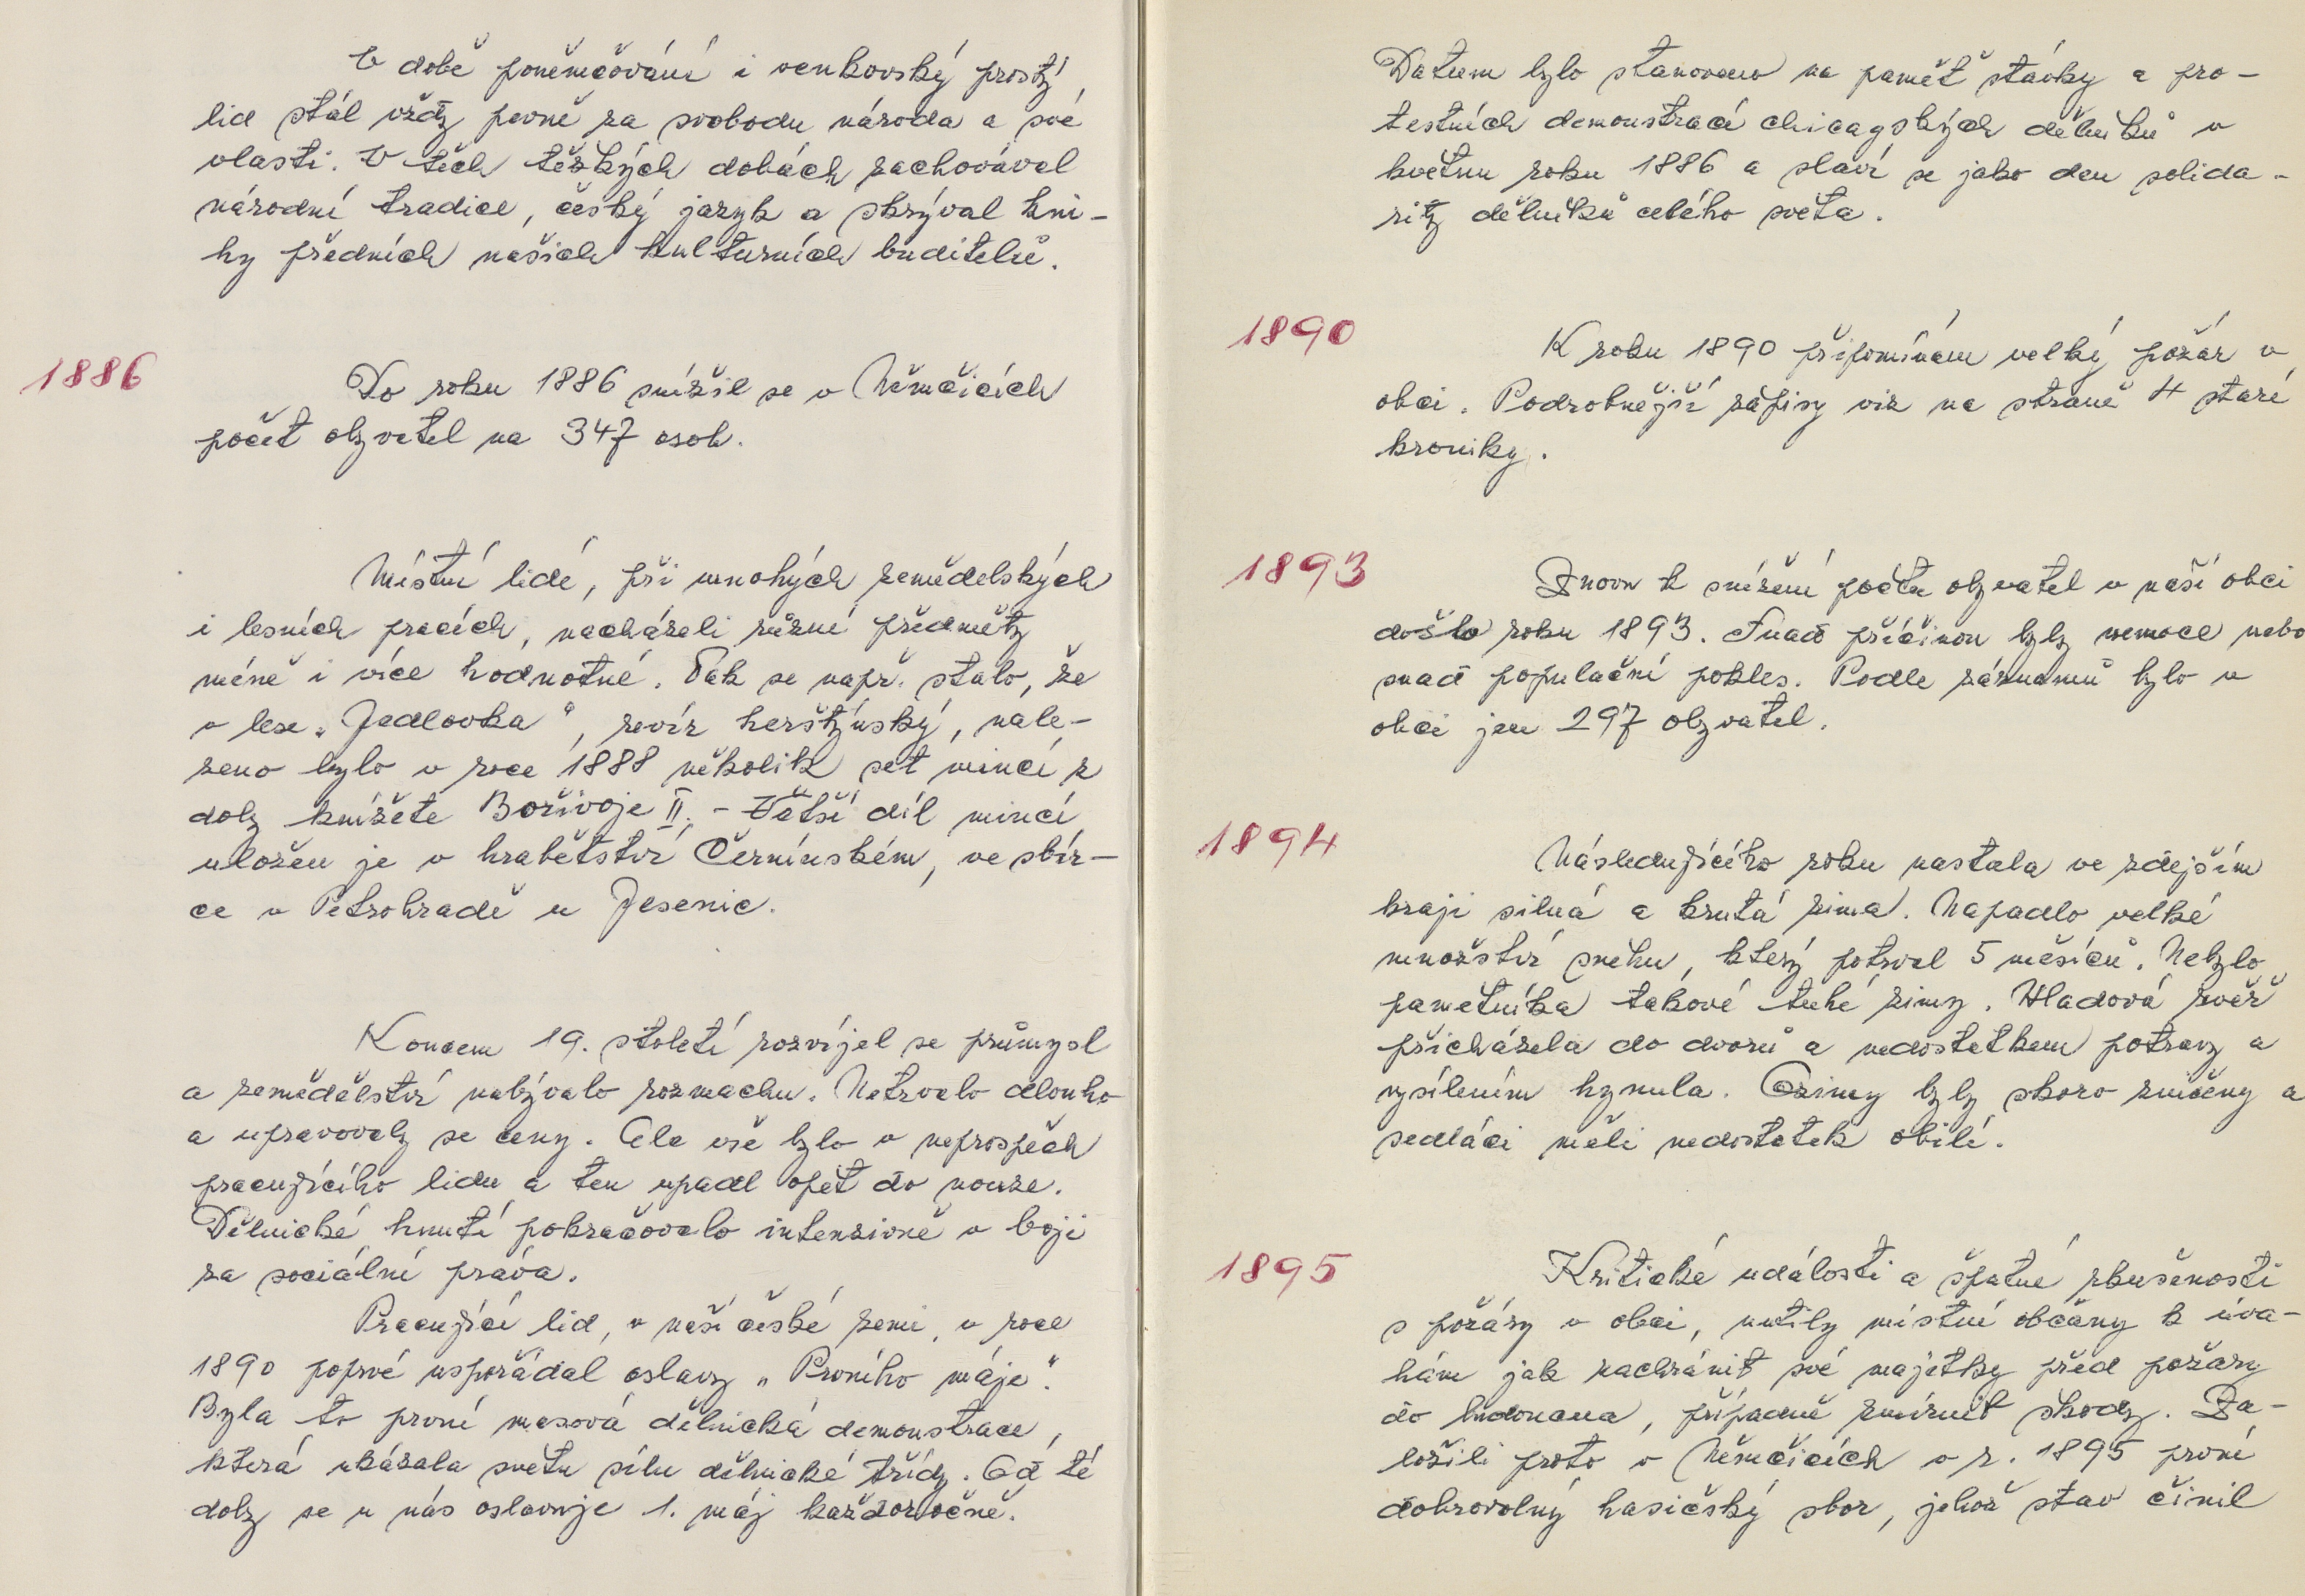 V době poněmčování i venkovský prostý
lid stál vždy pevně za svobodu národa a své
vlasti. V těch těžkých dobách zachovával
národní tradice, český jazyk a skrýval kni-
hy předních našich kulturních buditelů.
1886
Do roku 1886 snížil se v Němčicích
počet obyvatel na 347 osob.
Místní lidé, při mnohých zemědělských
i lesních pracích, nacházeli různé předměty
méně i více hodnotné. Tak se např. stalo, že
v lese „Jedlovka", revír herštýnský, nale-
zeno bylo v roce 1888 několik set mincí z
doby knížete Bořivoje II. - Větší díl mincí
uložen je v hraběctví Černínském, ve sbír-
ce v Petrohradě u Jesenic.
Koncem 19. století rozvíjel se průmysl
a zemědělství nabývalo rozmachu. Netrvalo dlouho
a upravovaly se ceny. Ale vše bylo v neprospěch
pracujícího lidu a ten upadl opět do nouze.
Dělnické hnutí pokračovalo intenzivně v boji
za sociální práva.
Pracující lid, v naší české zemi, v roce
1890 poprvé uspořádal oslavy „Prvního máje".
Byla to první masová dělnická demonstrace,
která ukázala světu sílu dělnické třídy. Od té
doby se u nás oslavuje 1. máj každoročně.
Datum bylo stanoveno na paměť stávky a pro-
testních demonstrací chicagských dělníků v
květnu roku 1886 a slaví se jako den solida-
rity dělníků celého světa.
1890
K roku 1890 připomínám velký požár v
obci. Podrobnější zápisy viz na straně 4 staré
kroniky.
1893
Znovu k snížení počtu obyvatel v naší obci
došlo roku 1893. Snad příčinou byly nemoce nebo
snad populační pokles. Podle záznamů bylo v
obci jen 297 obyvatel.
1894
Následujícího roku nastala ve zdejším
kraji silná a krutá zima. Napadlo velké
množství sněhu, který potrval 5 měsíců. Nebylo
pamětníka takové tuhé zimy. Hladová zvěř
přicházela do dvorů a nedostatkem potravy a
vysílením hynula. Ozimy byly skoro zničeny a
sedláci měli nedostatek obilí.
1895
Kritické události a špatné zkušenosti
s požáry v obci, nutily místní občany k úva-
hám jak zachránit své majetky před požáry
do budoucna, případně zmírnit škody. Za-
ložili proto v Němčicích v r. 1895 první
dobrovolný hasičský sbor, jehož stav činil